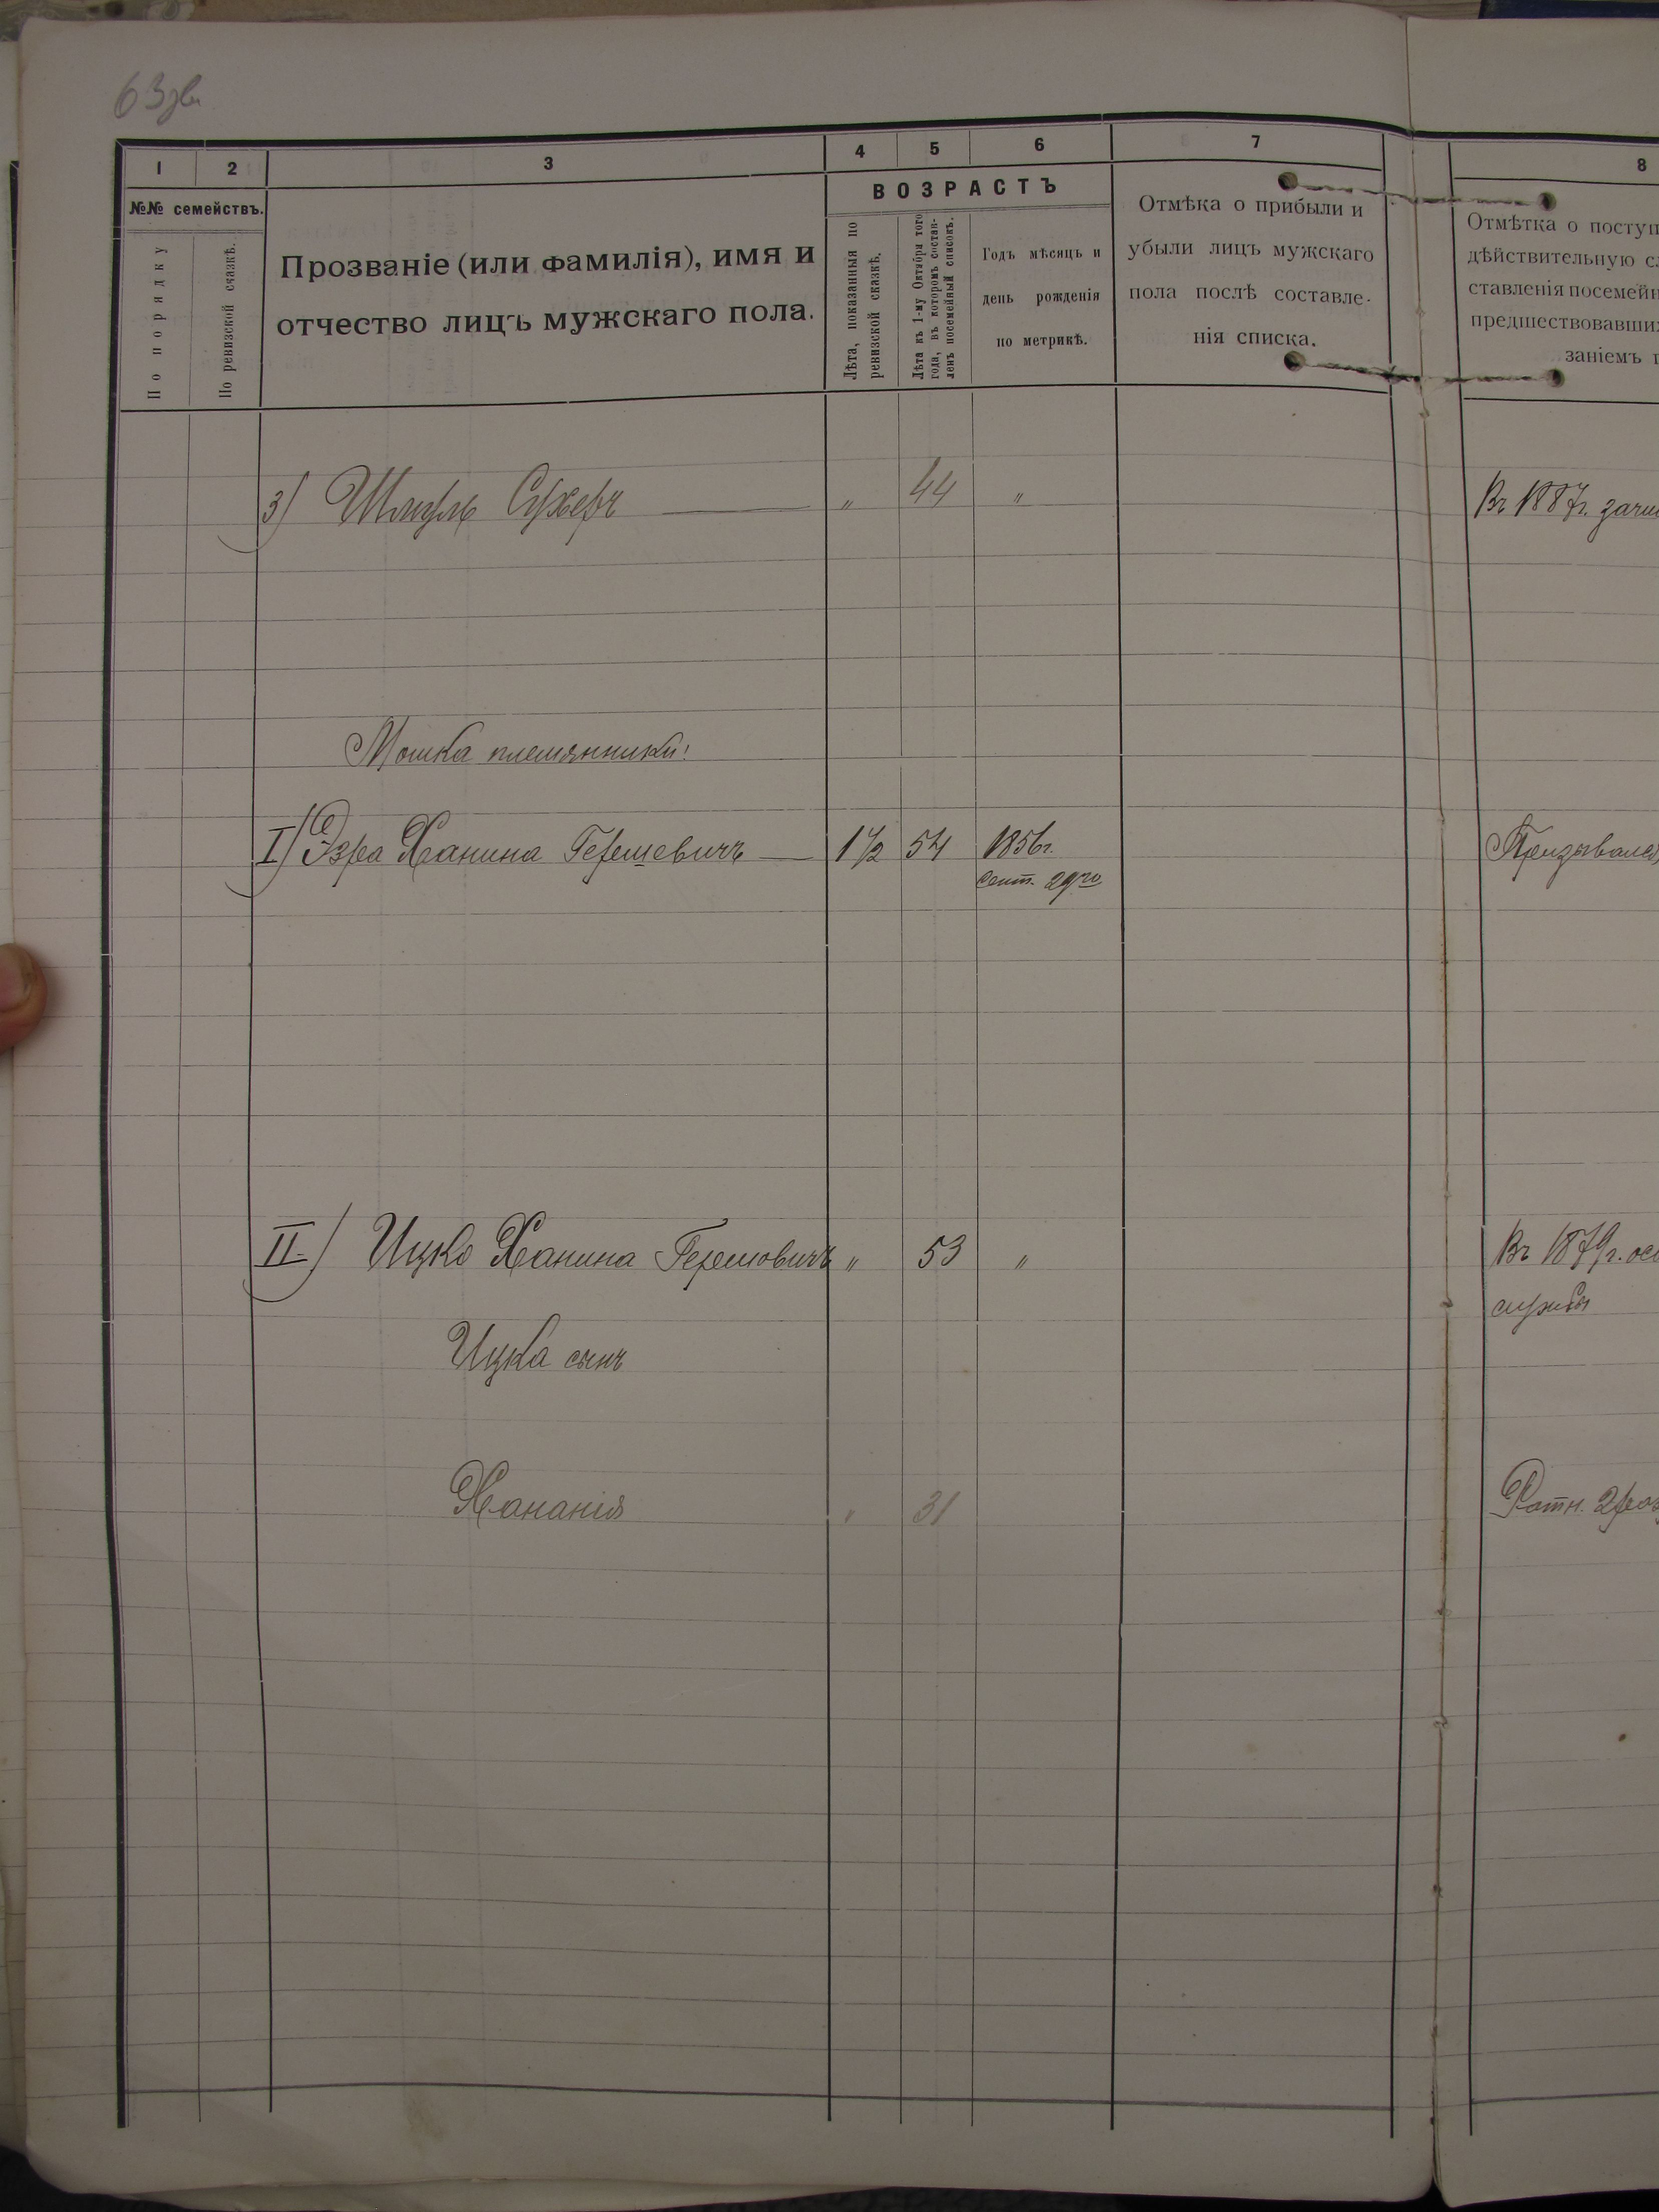 63зв
1 2 3 4 5 6 7 8
№№ семействъ.
По порядку
По ревизской сказкѣ.
Прозваніе (или фамилія), имя и
отчество лицъ мужскаго пола.
ВОЗРАСТЪ
Лѣта, показанныя по
ревизской сказкѣ.
Лѣта къ 1-му Октября того
года, въ которомъ состав-
ленъ посемейный списокъ.
Годъ мѣсяцъ и
день рожденія
по метрикѣ.
Отмѣка о прибыли и
убыли лицъ мужскаго
пола послѣ составле-
нія списка.
Отмѣтка о поступ
дѣйствительную сл
ставленія посемейн
предшествовавши
заніемъ
3) Шмуль Сухеръ — „ 44 „
Въ 1887г. зачи
Мошка племянники:
I) Эзра Ханина Гершевичъ — 1 1/2 54 1856г.
Сент. 29го
Призывался
II) Ицко Ханина Гершовичъ „ 53 „
Въ 1879г. осв
службы
Ицка сынъ
Хананія „ 31
Ратн. 2 раз